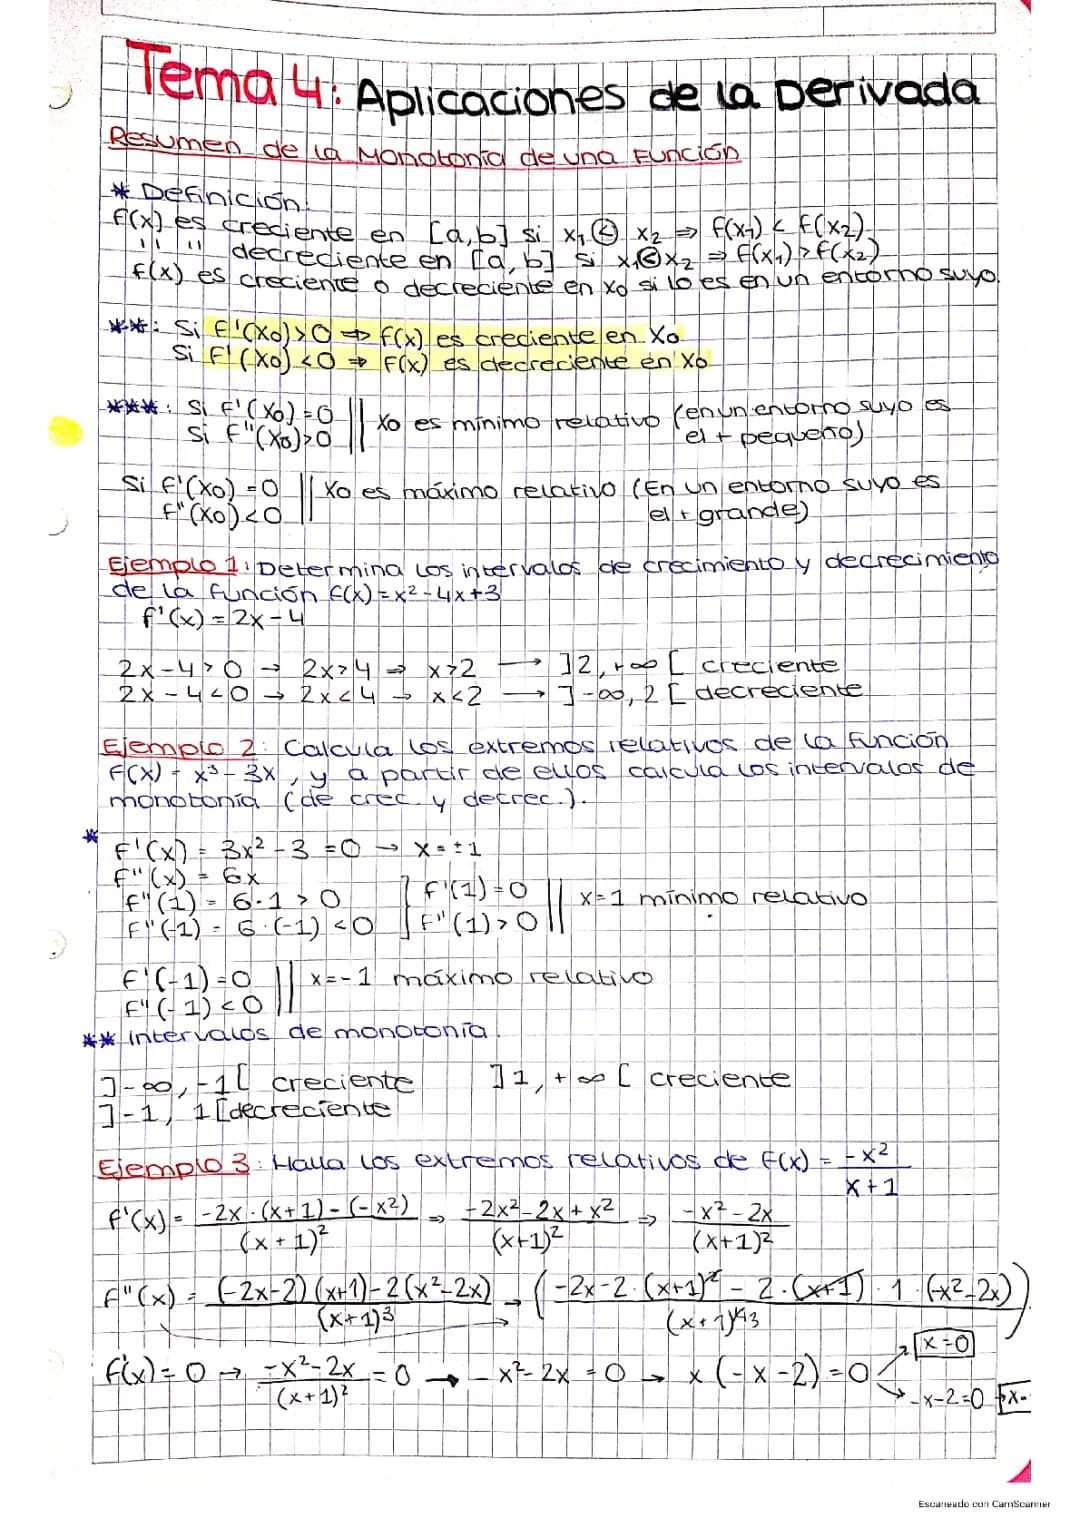 Tema 4: Aplicaciones de la Derivada
Resumen de la Monotonía de una Función
* Definición:
f(x) es creciente en [a,b] si x₁ < x₂ ⇒ f(x₁) < f(x₂).
" " decreciente en [a,b] si x₁ < x₂ ⇒ f(x₁) > f(x₂)
f(x) es creciente o decreciente en x₀ si lo es en un entorno suyo.
**: Si f'(x₀)>0 ⇒ f(x) es creciente en x₀.
Si f'(x₀)<0 ⇒ f(x) es decreciente en x₀
***: Si f'(x₀)=0 || x₀ es mínimo relativo (en un entorno suyo es
Si f''(x₀)>0 || el + pequeño)
Si f'(x₀)=0 || x₀ es máximo relativo (En un entorno suyo es
f''(x₀)<0 || el + grande)
Ejemplo 1: Determina los intervalos de crecimiento y decrecimiento
de la función f(x)=x²-4x+3
f'(x)=2x-4
2x-4>0 → 2x>4 → x>2 → ]2,+∞[ creciente
2x-4<0 → 2x<4 → x<2 → ]-∞,2[ decreciente
Ejemplo 2: Calcula los extremos relativos de la función
f(x) = x³-3x, y a partir de ellos calcula los intervalos de
monotonía (de crec. y decrec.).
*
f'(x) = 3x²-3=0 → x=±1
f''(x) = 6x
f''(1) = 6·1 > 0 ] f'(1)=0 || x=1 mínimo relativo
f''(-1) = 6·(-1) <0 ] f''(1)>0 ||
f'(-1)=0 || x=-1 máximo relativo
f''(-1)<0 ||
** Intervalos de monotonía.
]-∞,-1[ creciente ]1,+∞[ creciente
]-1, 1[ decreciente
Ejemplo 3: Halla los extremos relativos de f(x) = -x² / x+1
f'(x) = -2x·(x+1)-(-x²) / (x+1)² ⇒ -2x²-2x+x² / (x+1)² ⇒ -x²-2x / (x+1)²
f''(x) = (-2x-2)(x+1)-2(x²-2x) / (x+1)³ → (-2x-2·(x+1)² - 2·(x+1)·1·(-x²-2x) / (x+1)⁴³)
f'(x)=0 → -x²-2x / (x+1)² = 0 → -x²-2x=0 → x(-x-2)=0 ↗ x=0
↘ -x-2=0 → x=-
Escaneado con CamScanner